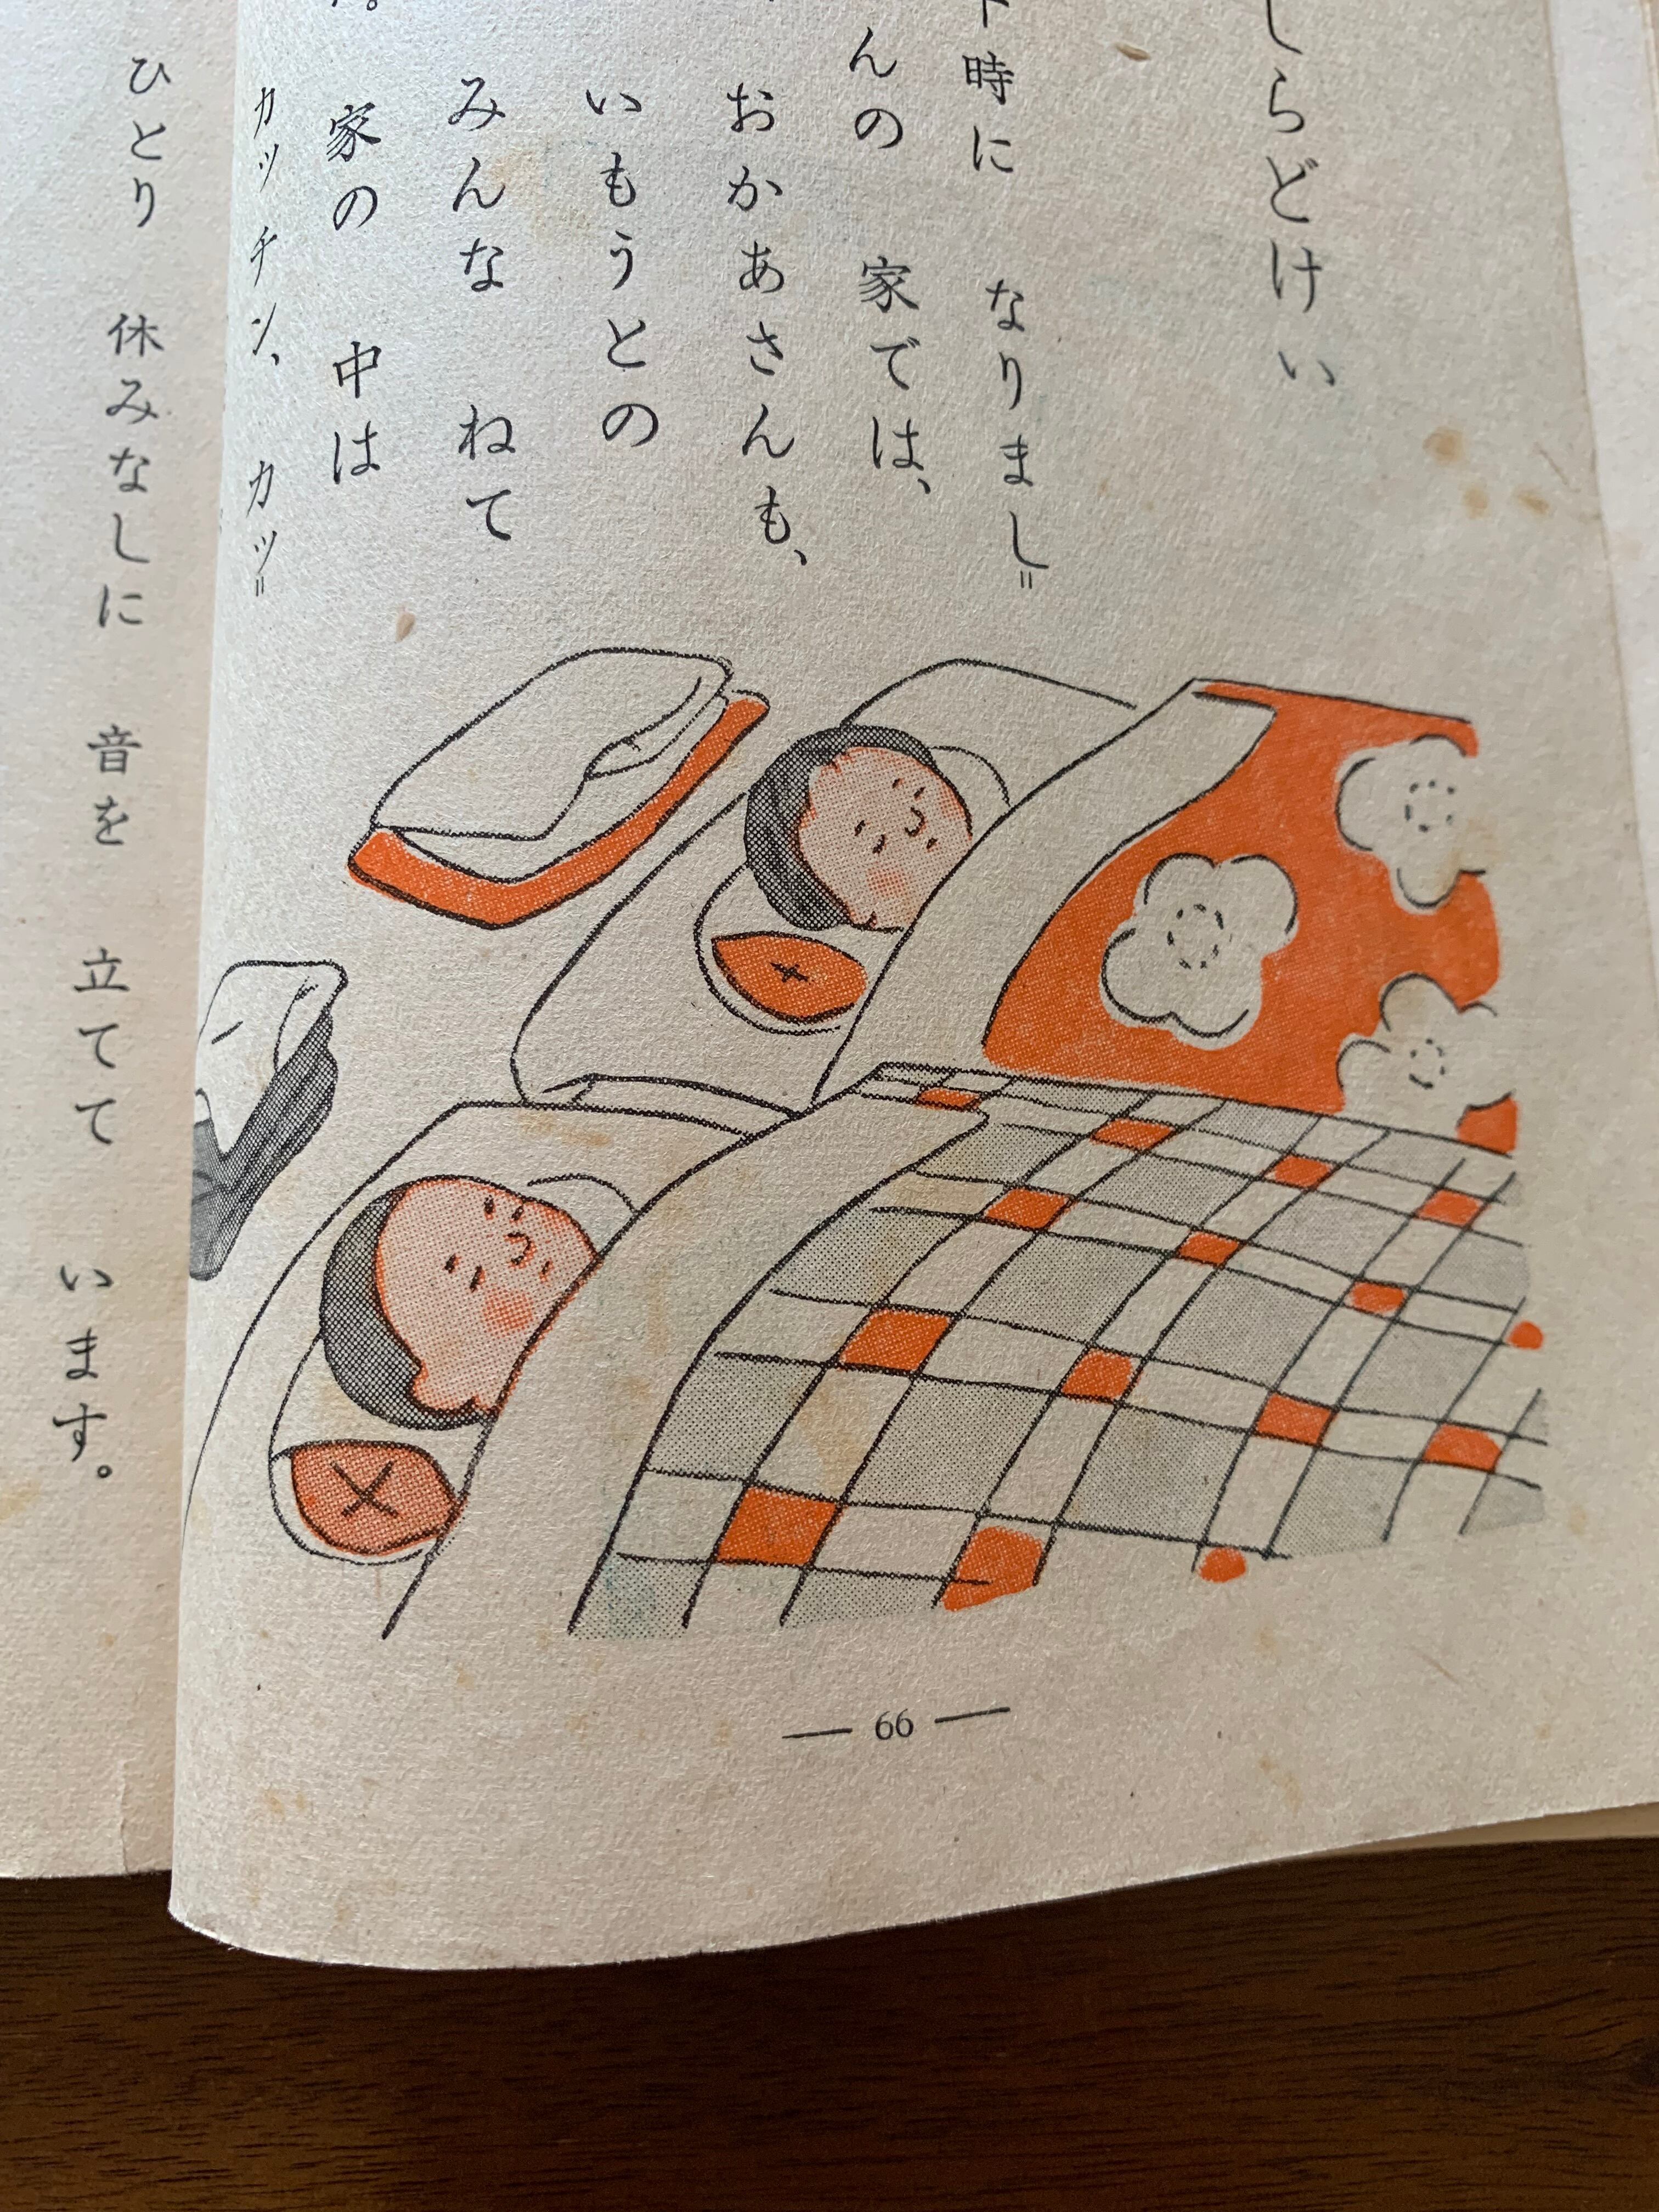 しらどけい
時に なりまし＝
んの 家では、
おかあさんも、
いもうとの
みんな ねて
家の 中は
カッチン、カッ＝
66
ひとり 休みなしに 音を 立てて います。